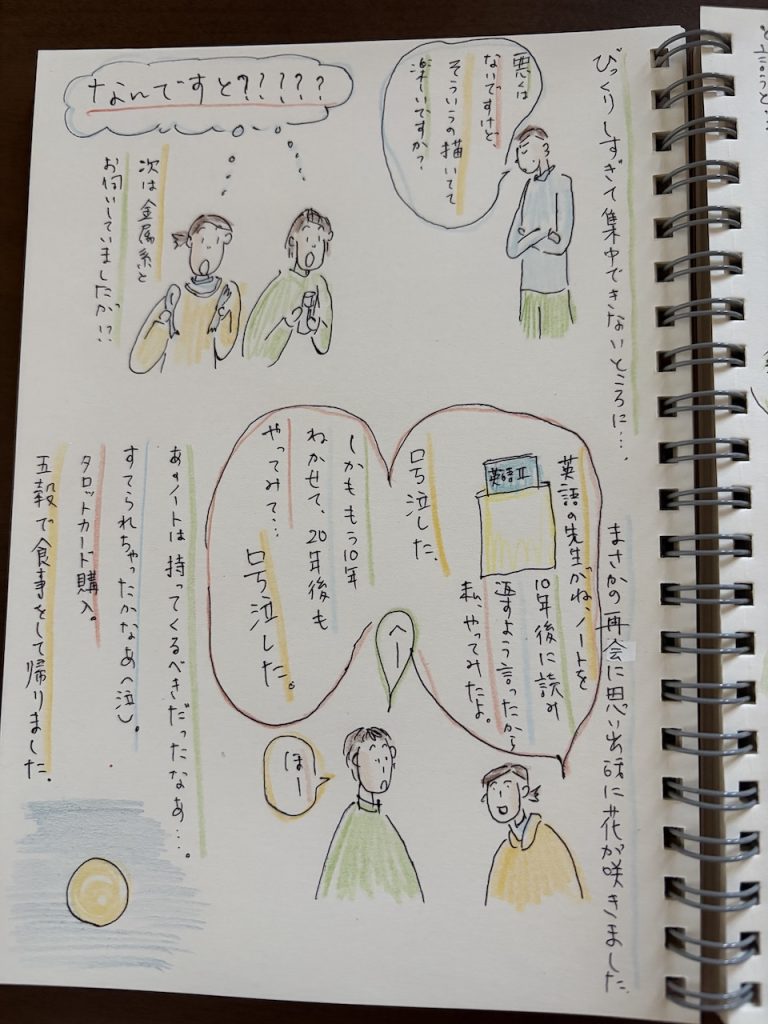 びっくりしすぎて集中できないところに…、
悪くは
ないですけど
そういうの描いてて
楽しいですか?
なんですと?????
次は金属系と
お伺いしていましたが!?
まさかの再会に思い出話に花が咲きました。
英語の先生がね、ノートを
10年後に読み
返すよう言ったから
私、やってみたよ。
英語II
号泣した。
しかももう10年
ねかせて、20年後も
やってみて…
号泣した。
へー
ほー
あのノートは持ってくるべきだったなあ…。
すてられちゃったかなあ(泣)。
タロットカード購入。
五穀で食事をして帰りました。